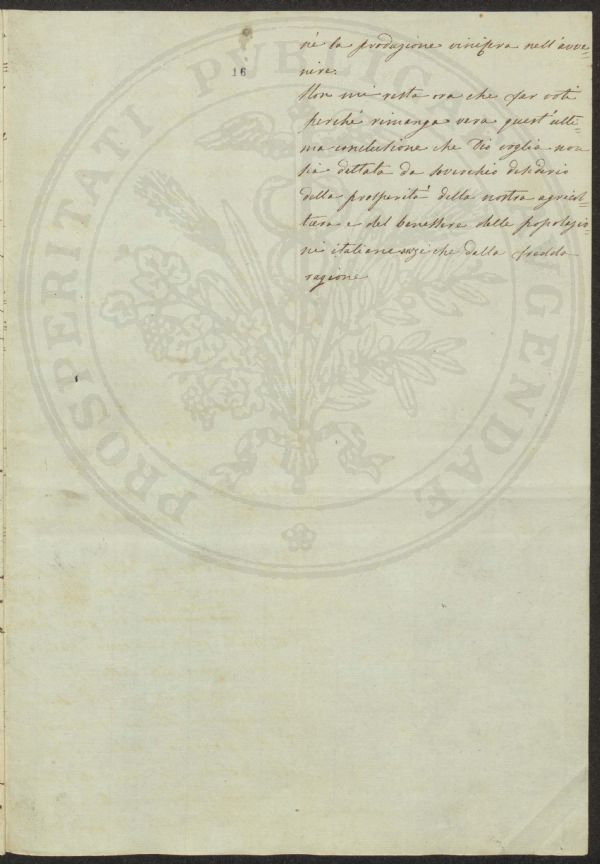 16
né la produzione vinifera nell'avve=
nire.
Non mi resta ora che far voti
perché rimanga vera quest'ulti=
ma conclusione che Dio voglia non
sia dettata da soverchio desiderio
della prosperità della nostra agricol=
tura e del benessere delle popolazio=
ni italiane anziche dalla fredda
ragione
PROSPERITATI PUBLICAE AUGENDAE